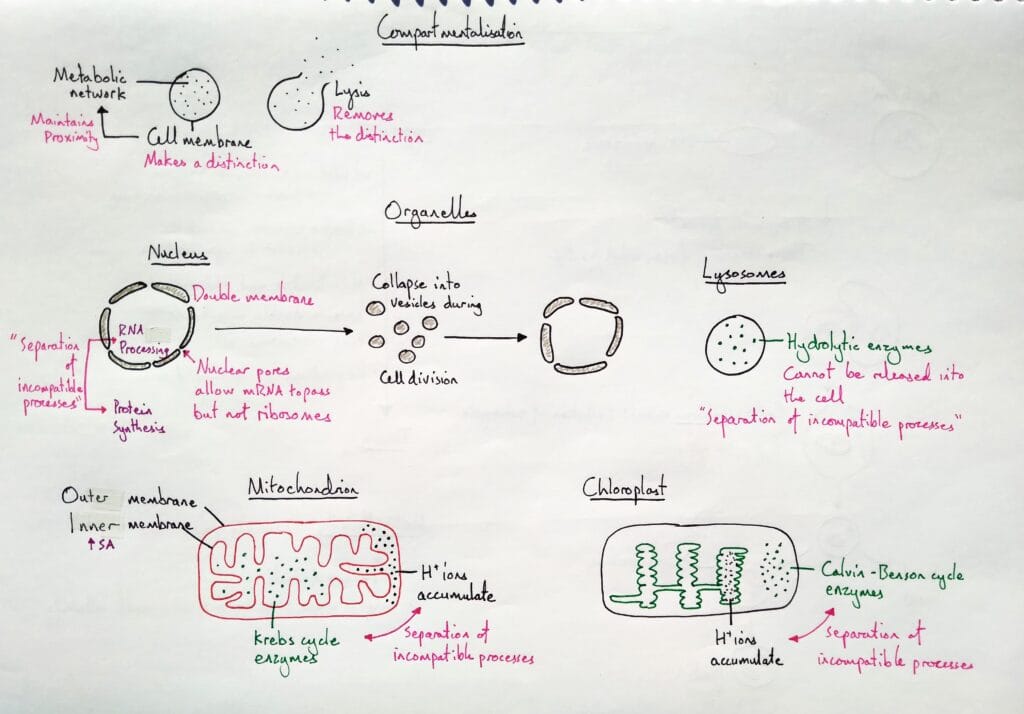 Compartmentalisation
Metabolic
network
Maintains
Proximity
Cell membrane
Makes a distinction
Lysis
Removes
the distinction
Organelles
Nucleus
Double membrane
RNA
Processing
"Separation
of
incompatible
processes"
Protein
Synthesis
Nuclear pores
allow mRNA to pass
but not ribosomes
Collapse into
vesicles during
Cell division
Lysosomes
Hydrolytic enzymes
Cannot be released into
the cell
"Separation of incompatible processes"
Mitochondrion
Outer membrane
Inner membrane
↑SA
H⁺ ions
accumulate
Krebs cycle
enzymes
Separation of
incompatible processes
Chloroplast
Calvin-Benson cycle
enzymes
H⁺ ions
accumulate
Separation of
incompatible processes